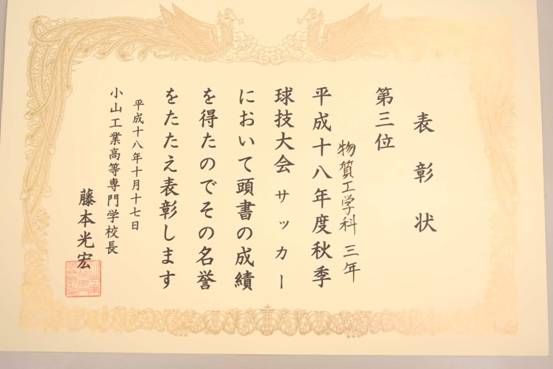 表彰状
第三位
物質工学科 三年
平成十八年度秋季
球技大会 サッカー
において頭書の成績
を得たのでその名誉
をたたえ表彰します
平成十八年十月十七日
小山工業高等専門学校長
藤本光宏